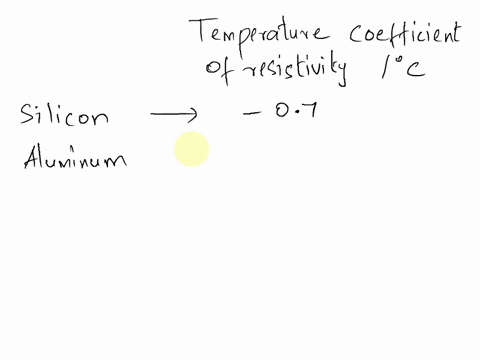 Temperature coefficient
of resistivity /°C
Silicon → - 0.7
Aluminum